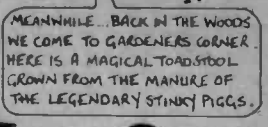 MEANWHILE...BACK IN THE WOODS
WE COME TO GARDENERS CORNER.
HERE IS A MAGICAL TOADSTOOL
GROWN FROM THE MANURE OF
THE LEGENDARY STINKY PIGGS.